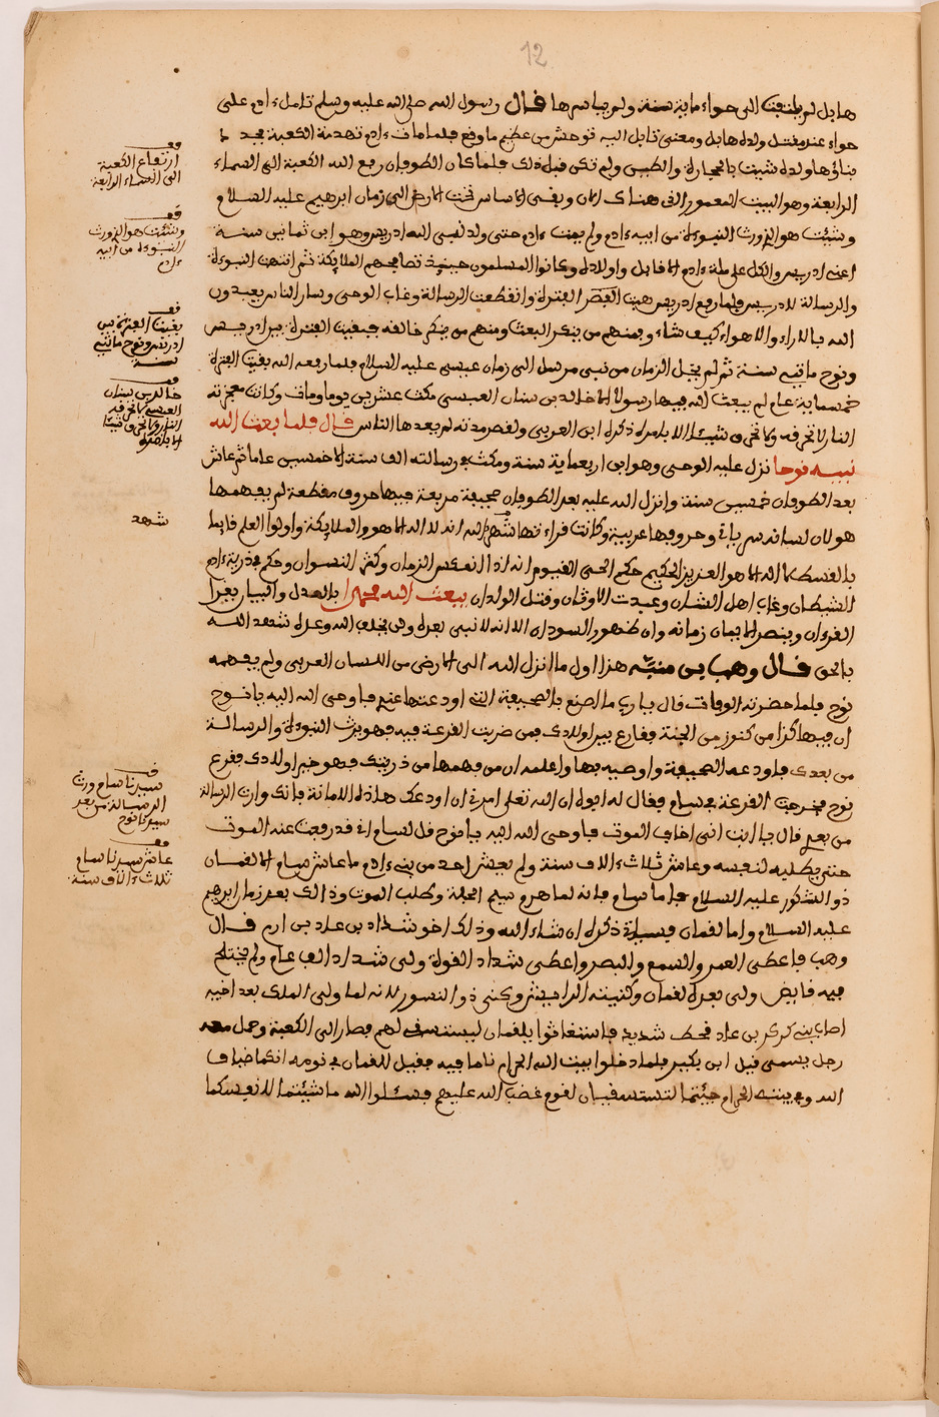 12
هابل لم يلتفت الى حواء ماية سنة ولم يباشرها فال رسول الله صلى الله عليه وسلم تامل ءادم على
حواء عند مفتل ولده هابل ومعنى فابل اليه توحش من عظيم ما وفع فلما مات ءادم تهدمت الكعبة
بناها ولده شيث بالحجارة والطين ولم تكن فبل ذلك فلما كان الطوفان رفع الله الكعبة الى السماء
الرابعة وهو البيت المعمور الذى هناك الان وبفى الاساس تحت الارض الى زمان ابرهيم عليه السلام
وشيث هو الذى ورث النبوءة من ابيه ءادم ولم يمت ءادم حتى ولد لفى الله ادريس وهو ابن ثمانين سنة
اعنى ادريس والكل على ملة ءادم الا فابل واولاده وكانوا المسلمون حينيذ تصافحهم الملايكة ثم انتهت النبوءة
والرسالة لادريس فلما رفع ادريس هبت الفترة وانفطعت الرسالة وغاب الوحى وسار الناس يعبدون
الله بالاراء والاهواء كيف شاء ومنهم من ينكر البعث ومنهم من ينكر خالفه فبفيت الفترة بين ادريس
ونوح مايتى سنة ثم لم يخل الزمان من نبى مرسل الى زمان عيسى عليه السلام فلما رفعه الله بفيت الفترة
خمسماية عام لم يبعث الله فيها رسولا الا خالد بن سنان العبسى مكث عشرين يوما ومات وكانت معجزته
النار لا تحرفه ولا تحرق شيئا الا بامره ذكره ابن العربى ولفصر مدته لم يعدها الناس فال فلما بعث الله
نبيه نوحا نزل عليه الوحى وهو ابن اربعماية سنة ومكث فى رسالته الف سنة الا خمسين عاما ثم عاش
بعد الطوفان خمسين سنة وانزل الله عليه بعد الطوفان صحيفة مربعة فيها حروف مفطعة لم يفهمها
هو لان لسانه سريانى وحروفها عربية وكانت فراءتها شهد الله انه لا اله الا هو والملايكة واولوا العلم فايما
بالفسط لا اله الا هو العزيز الحكيم حكم الحى الفيوم انه اذا انعكس الزمان وكثر النسوان وحكم فى ذرية ءادم
الشيطان وغاب اهل الشان وعبدت الاوثان وفتل الولدان يبعث الله محمدا بالعدل والبيان يفرا
الفرءان وينصر الايمان زمانه وان ظهور السودان الا انه لا نبى بعده ولن يخلف الله وعده شهد الله
بالحق فال وهب بن منبه هذا اول ما انزل الله الى الارض من اللسان العربى ولم يفهمه
نوح فلما حضرته الوفات فال يارب ما اصنع بالصحيفة التى اودعتها عندى فاوحى الله اليه يا نوح
ان فيها كنزا من كنوز من الجنة ففارع بين اولادى فمن ضربت الفرعة فيه فهو يرث النبوءة والرسالة
من بعدى فاودعه الصحيفة واوصيه بها واعلمه ان من يفهمها من ذريتك فهو خير اولادى ففرع
نوح فخرجت الفرعة فى سام ففال له ابوه ان الله تعلى امرنى ان اودعك هاذه الامانة فانك وارث الرسالة
من بعدى فال يا ابت انى اخاف الموت فاوحى الله اليه يا نوح فل لسام انى فد رفعت عنه الموت
حتى يطلبه لنفسه وعاش ثلاثة الاف سنة ولم يعش احد من بنى ءادم ما عاش سام الا لفمان
ذو النسور عليه السلام فاما سام فانه لما هرم سيم الحياة وطلب الموت وذالك بعد زمان ابرهيم
عليه السلام واما لفمان فسياتى ذكره ان شاء الله وذلك اخو شداد بن عاد بن ارم فال
وهب فاعطى العمر والسمع والبصر واعطى شداد الفوة وولى شداد الف عام ولم يختلج
فيه فابض وولى بعده لفمان وكنيته الرايش ويكنى ذو النسور لانه لما ولى الملك بعد اخيه
اصاب بنى كركر بن عاد فحط شديد فاستغاثوا بلفمان ليستسفى لهم فصار الى الكعبة وحمل معه
رجل يسمى فيل ابن بكير فلما دخلوا بيت الله الحرام ناما فيه ففيل للفمان فى نومه انكما ضيافا
الله وفى بيته الحرام جئتما لتستسفيان لفوم غضب الله عليهم فسئلوا الله ما شيئتما لانفسكما
فف
ارتفاع الكعبة
الى السماء الرابعة
فف
وشيث هو الذى ورث
النبوءة من ابيه
ءادم
فف
بفيت الفترة بين
ادريس ونوح مايتى
سنة
فف
خالد بن سنان
العبسى لا تحرفه
النار ولا تحرق شيئا
الا بامره
شهد
فف
سيدنا سام ورث
الرسالة من بعد
سيدنا نوح
فف
عاش سيدنا سام
ثلاثة ءالاف سنة